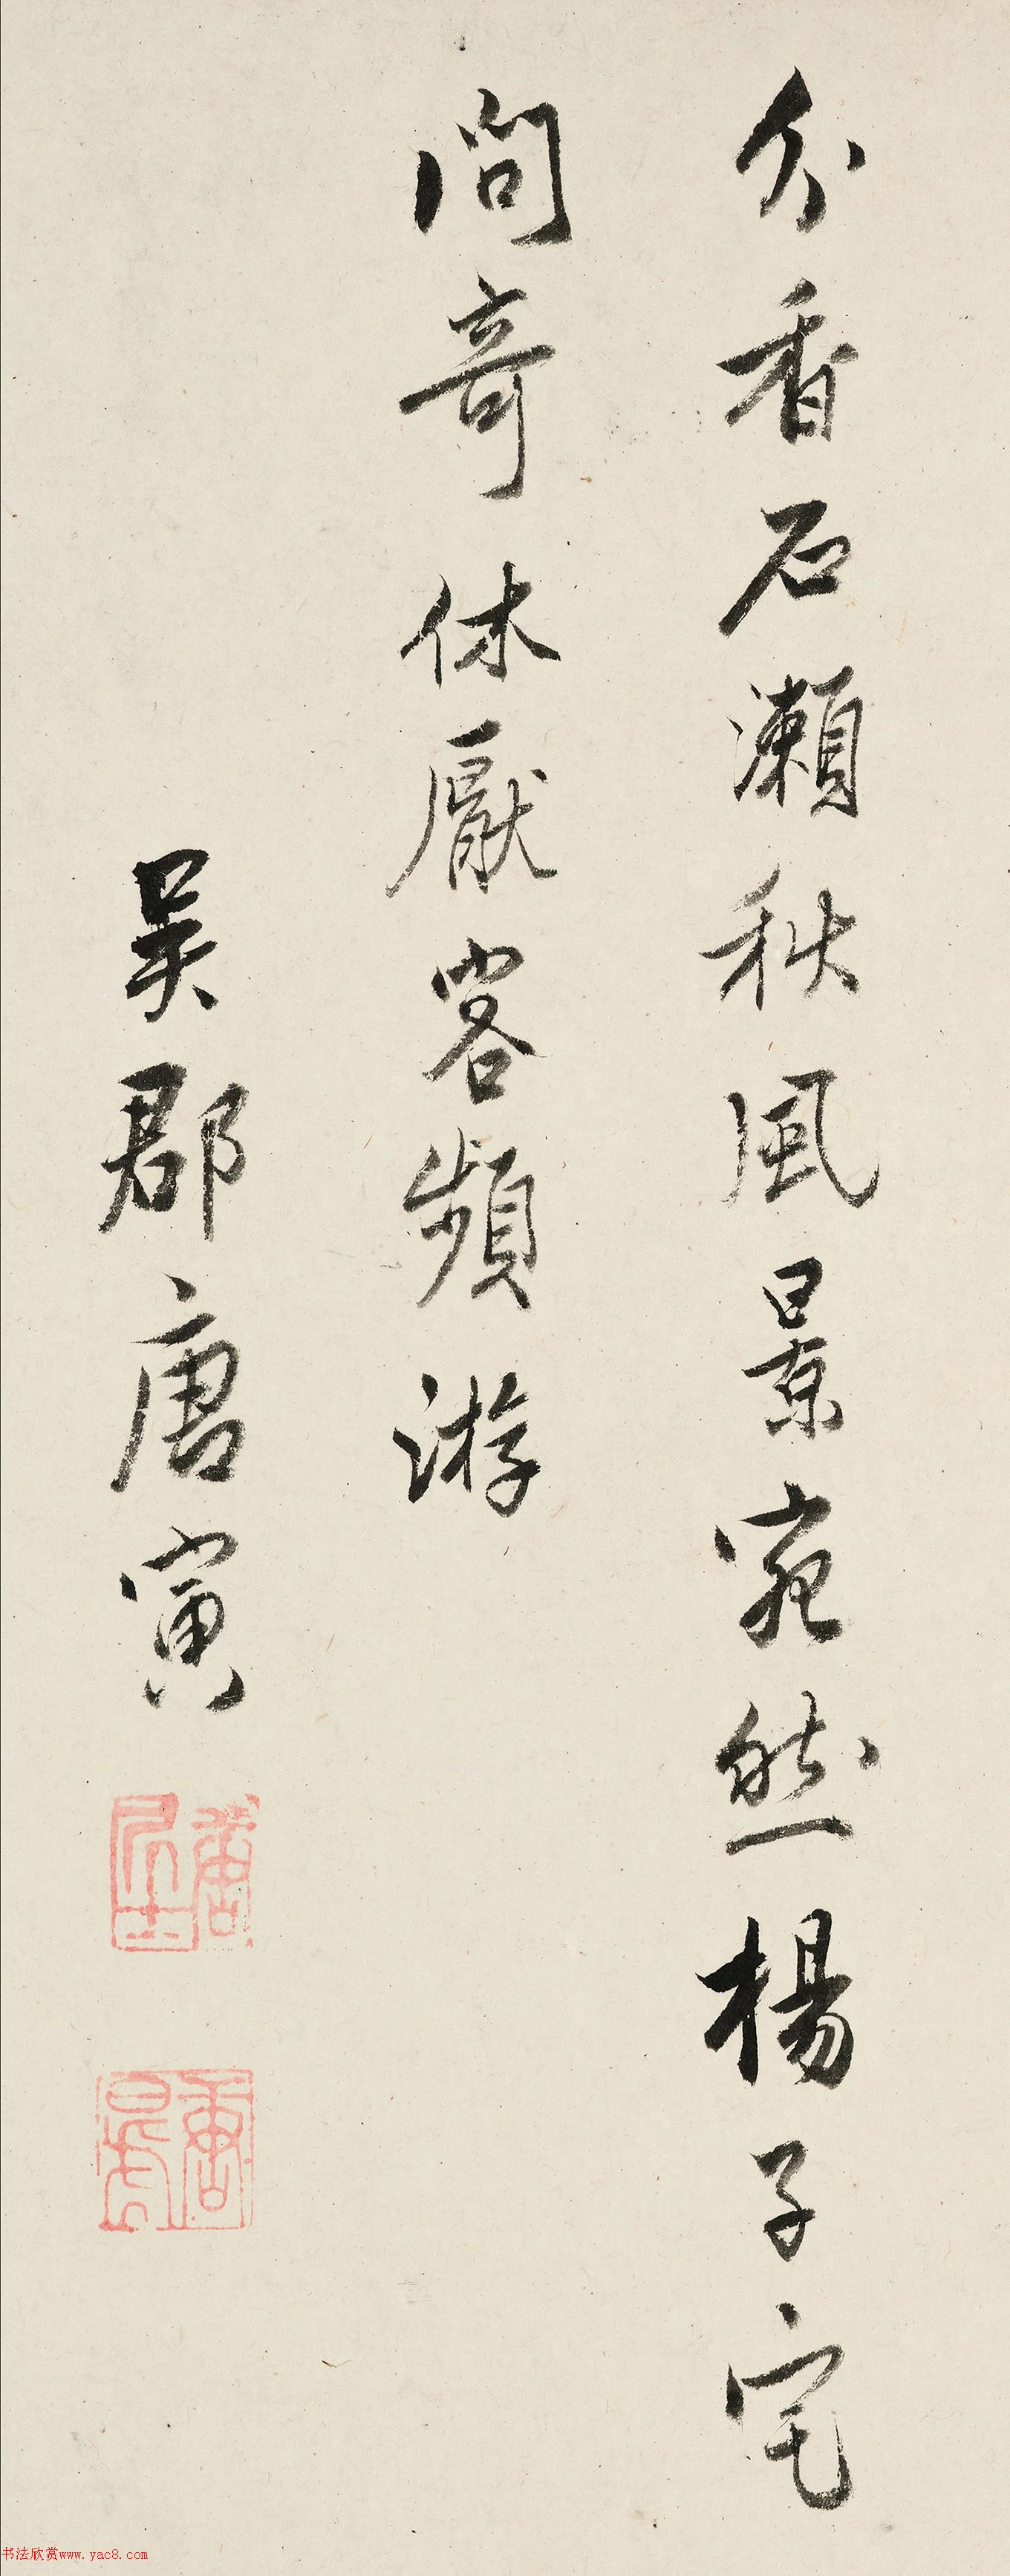 分香石瀨秋風景宛然楊子宅
問奇休厭客頻游
吳郡唐寅
唐居士
书法欣赏www.yac8.com